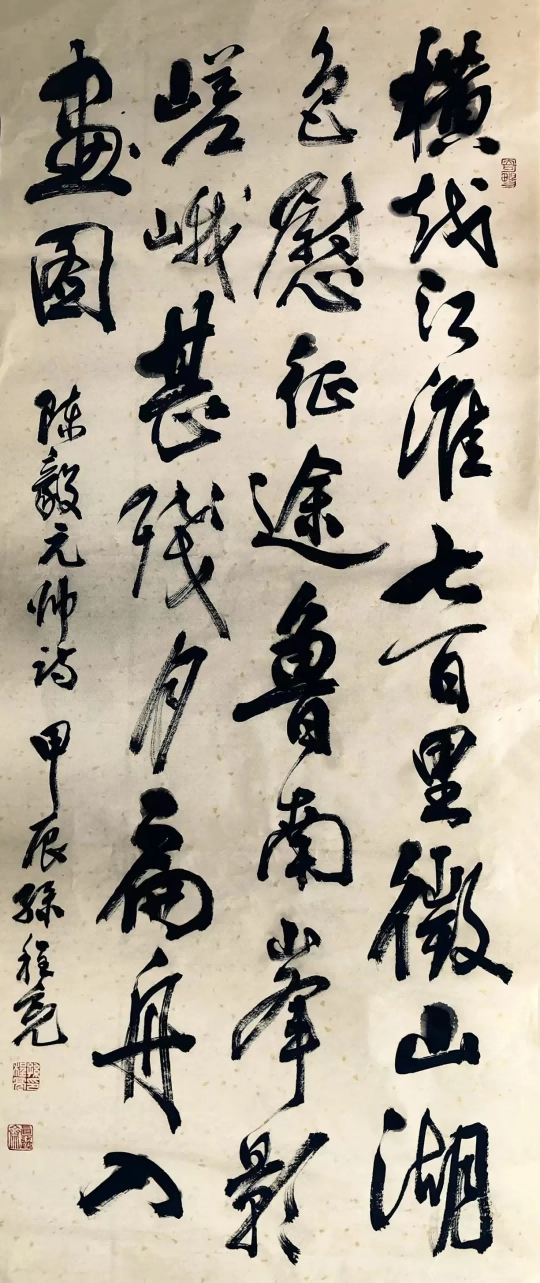 横越江淮七百里微山湖
色慰征途鲁南峯影
嵯峨甚残月扁舟入
画图
陈毅元帅诗 甲辰 孫程亮